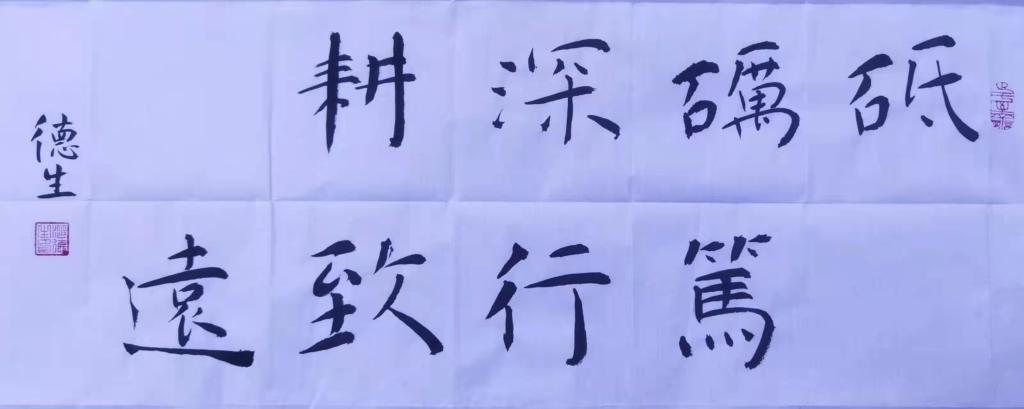 砥礪深耕
篤行致遠
德生